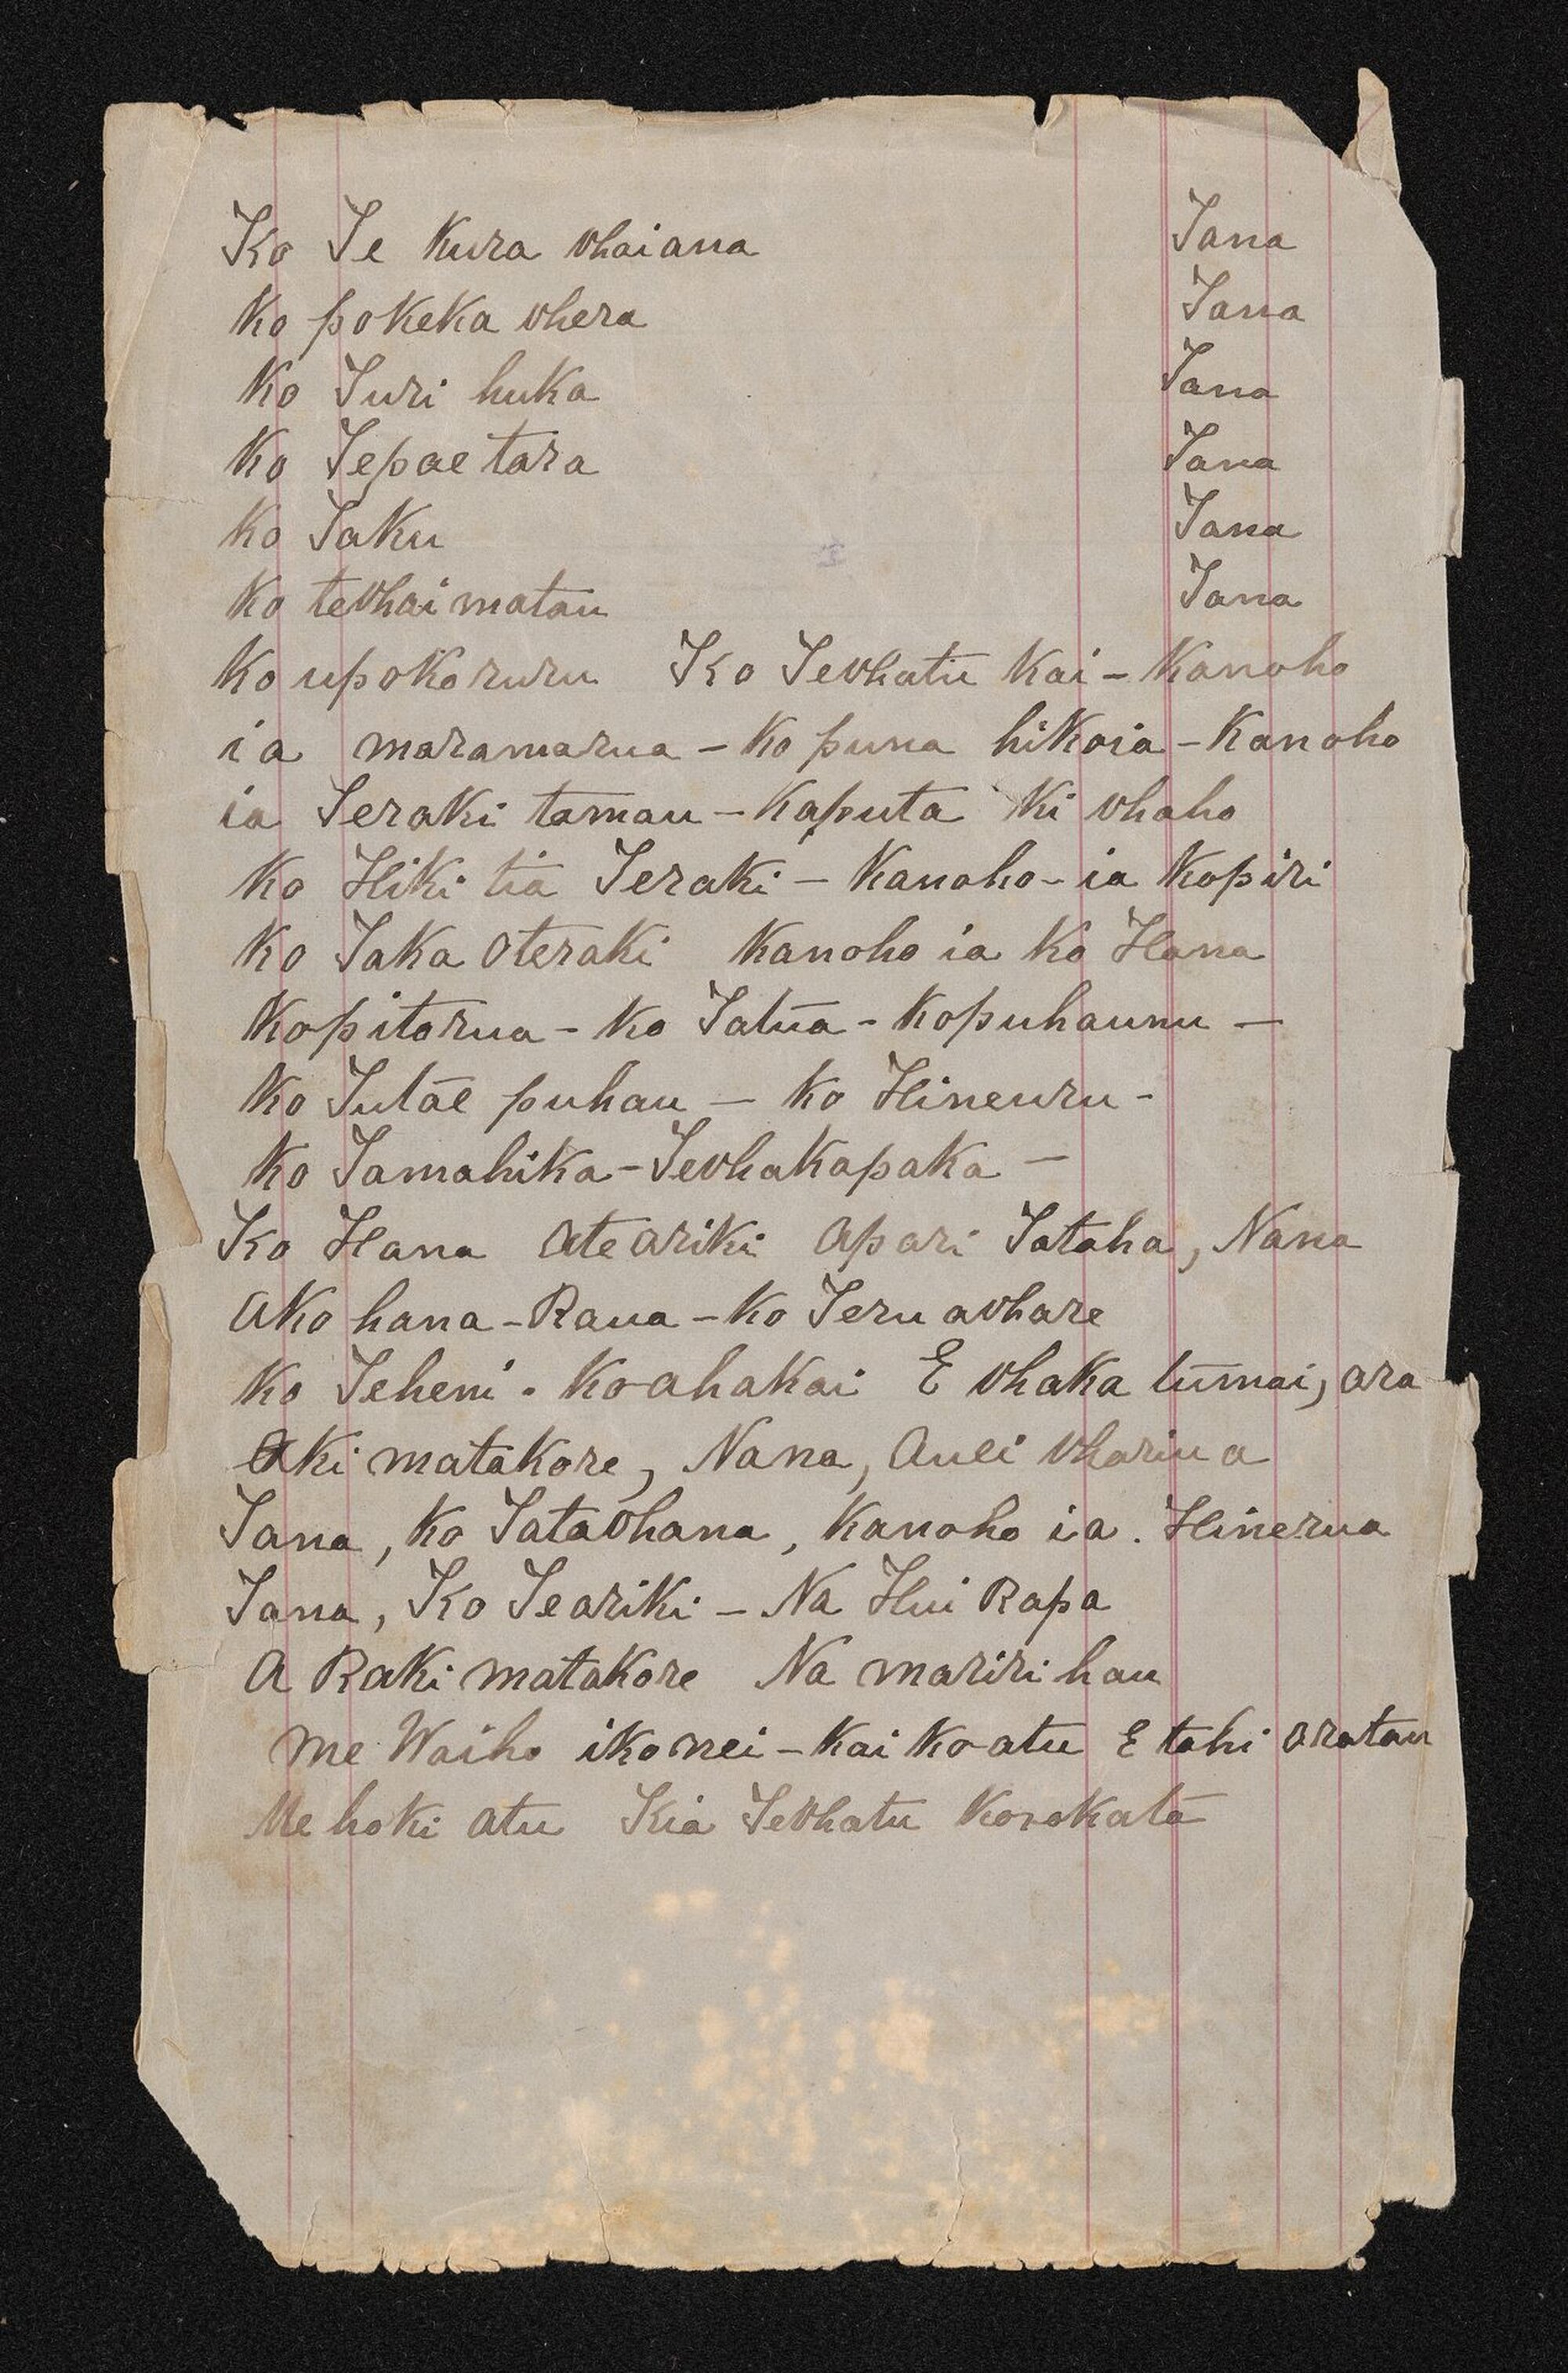 Ko Te Kura whaiana Tana
Ko pokeka whera Tana
Ko Turi huka Tana
Ko Tepae tara Tana
Ko Taku Tana
Ko tewhai matau Tana
Ko upoko ruru Ko Tewhatu Kai - Kanoho
ia maramarua - Ko puna hikoia - Kanoho
ia Teraki tamau - Kaputa Ki whaho
Ko Hiki tia Teraki - Kanoho - ia Kopiri
Ko Taka Oteraki Kanoho ia Ko Hana
Kopitarua - Ko Tatua - Kopuhaunu -
Ko Tutae puhau - Ko Hineuru -
Ko Tamahika - Tewhakapaka -
Ko Hana Ate ariki Apari Tataha, Nana
Ako hana - Raua - Ko Teru awhare
Ko Teheni - Ko ahakai E whaka tumai, ara
Aki matakore, Nana, Auei whariua
Tana, Ko Tatawhana, Kanoho ia. Hinerua
Tana, Ko Teariki - Na Hui Rapa
A Raki matakore Na mariri hau
Me Waiho iko nei - Kai Ko atu E tahi aratau
Me hoki atu Kia Tewhatu Korokata